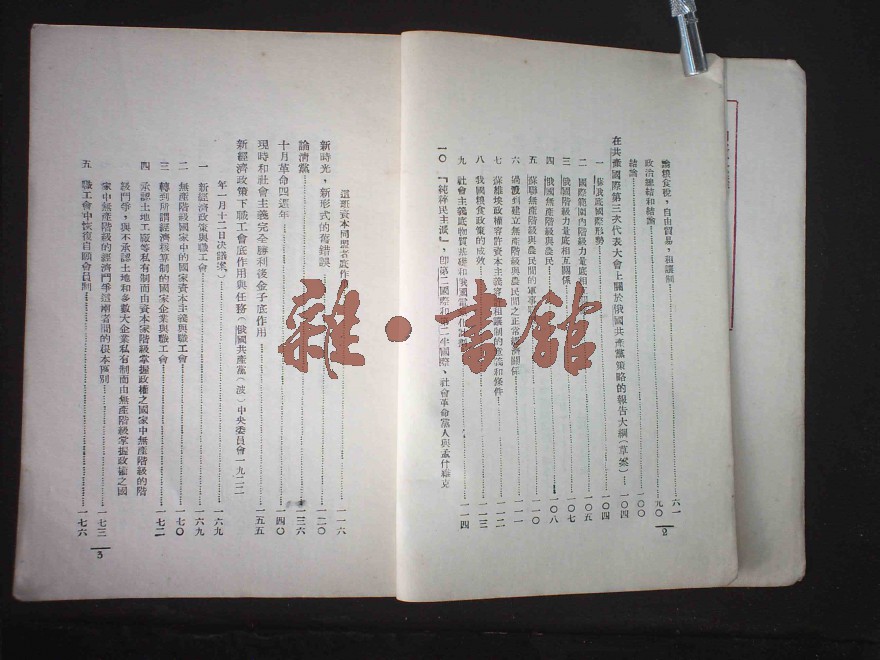 論糧食稅，自由貿易，租讓制……六一
政治總結和結論……九〇
結論……一〇〇
在共產國際第三次代表大會上關於俄國共產黨策略的報告大綱（草案）……一〇四
一 蘇俄底國際形勢……一〇四
二 國際範圍內階級力量底相互關係……一〇五
三 俄國階級力量底相互關係……一〇七
四 俄國無產階級與農民……一〇八
五 蘇聯無產階級與農民間的軍事……一一〇
六 過渡到建立無產階級與農民間之正常經濟關係……一一一
七 蘇維埃政權容許資本主義和租讓制的意義和條件……一一二
八 我國糧食政策的成效……一一三
九 社會主義底物質基礎和俄國電氣化計劃……一一四
一〇 「純粹民主派」，即第二國際和第二半國際、社會革命黨人與孟什維克
2
這班資本同盟者底作……一一六
新時光，新形式的舊錯誤……一二〇
論清黨……一三六
十月革命四週年……一四〇
現時和社會主義完全勝利後金子底作用……一五五
新經濟政策下職工會底作用與任務（俄國共產黨（波）中央委員會一九二二
年一月十二日決議案）……一六九
一 新經濟政策與職工會……一六九
二 無產階級國家中的國家資本主義與職工會……一七〇
三 轉到所謂經濟核算制的國家企業與職工會……一七二
四 承認土地工廠等私有制而由資本家階級掌握政權之國家中無產階級的階
級鬥爭，與不承認土地和多數大企業私有制而由無產階級掌握政權之國
家中無產階級的經濟鬥爭這兩者間的根本區別……一七三
五 職工會中恢復自願會員制……一七六
3
雜·書館